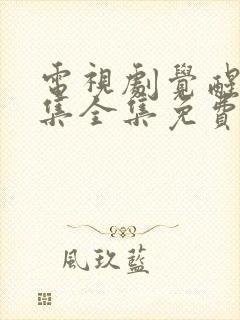 電視劇覺醒
集全集免費
風玖藍